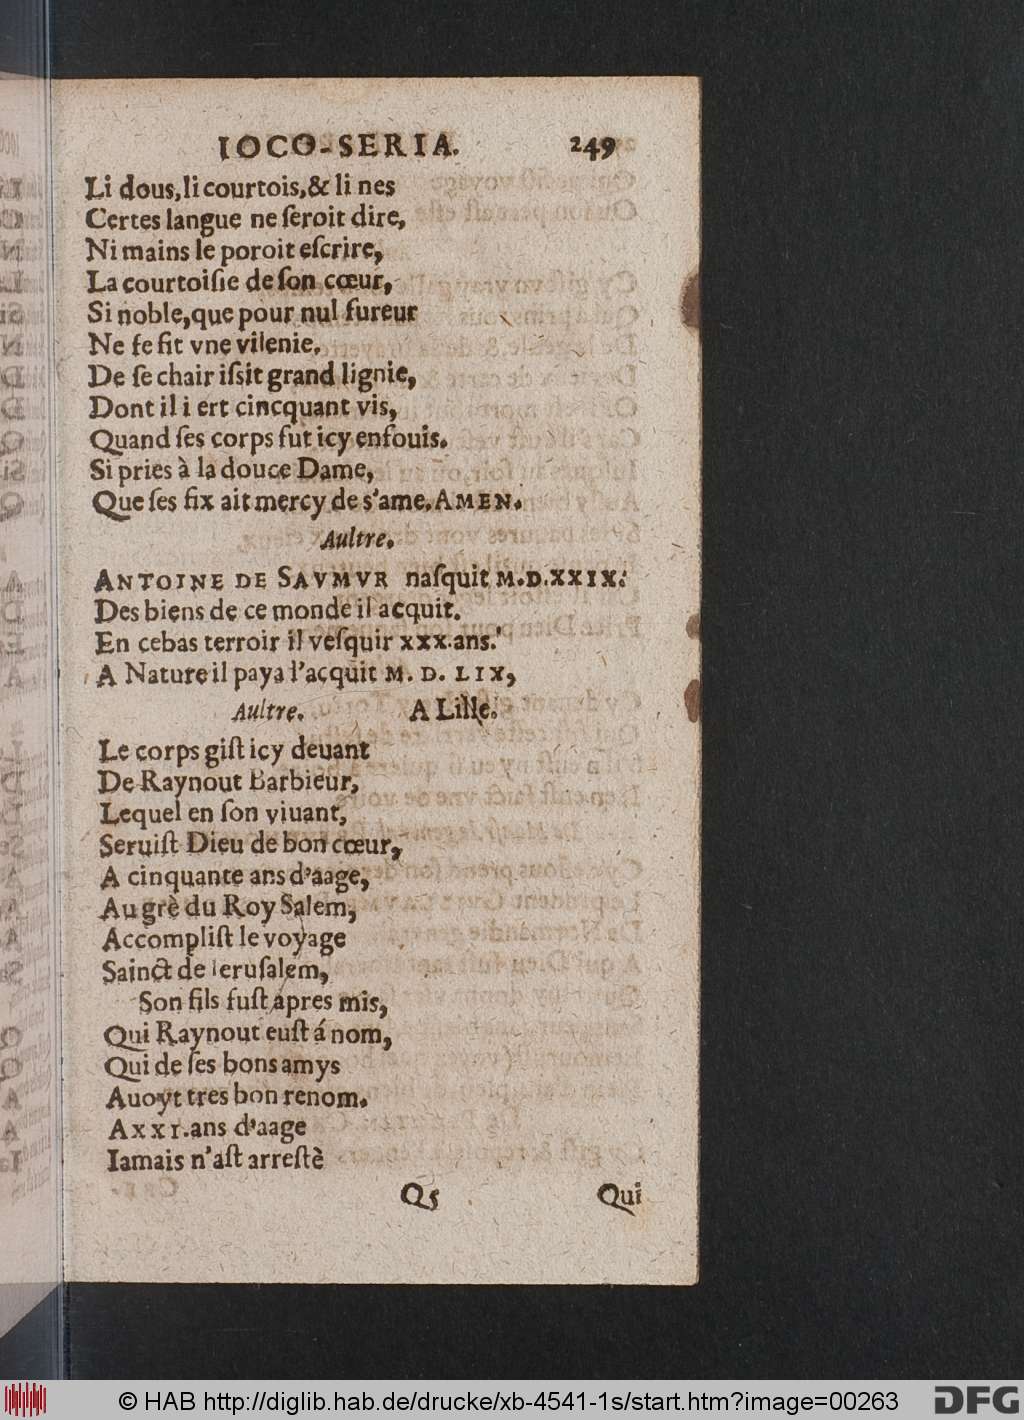 IOCO-SERIA. 249
Li dous, li courtois, & li nes
Certes langue ne ſeroit dire,
Ni mains le poroit eſcrire,
La courtoiſie de ſon cœur,
Si noble, que pour nul fureur
Ne fe fit vne vilenie.
De ſe chair iſsit grand lignie,
Dont il i ert cincquant vis,
Quand ſes corps fut icy enfouis.
Si pries à la douce Dame,
Que ſes fix ait mercy de s'ame. AMEN.
Aultre.
ANTOINE DE SAVMVR naſquit M.D.XXIX.
Des biens de ce monde il acquit.
En cebas terroir il veſquir xxx.ans.
A Nature il paya l'acquit M. D. LIX,
Aultre. A Lille.
Le corps giſt icy deuant
De Raynout Barbieur,
Lequel en ſon viuant,
Seruiſt Dieu de bon cœur,
A cinquante ans d'aage,
Au grè du Roy Salem,
Accompliſt le voyage
Sainct de Ieruſalem,
Son fils fuſt apres mis,
Qui Raynout euſt á nom,
Qui de ſes bons amys
Auoyt tres bon renom.
A xxI.ans d'aage
Iamais n'aſt arreſtè
Q5 Qui
© HAB http://diglib.hab.de/drucke/xb-4541-1s/start.htm?image=00263
DFG